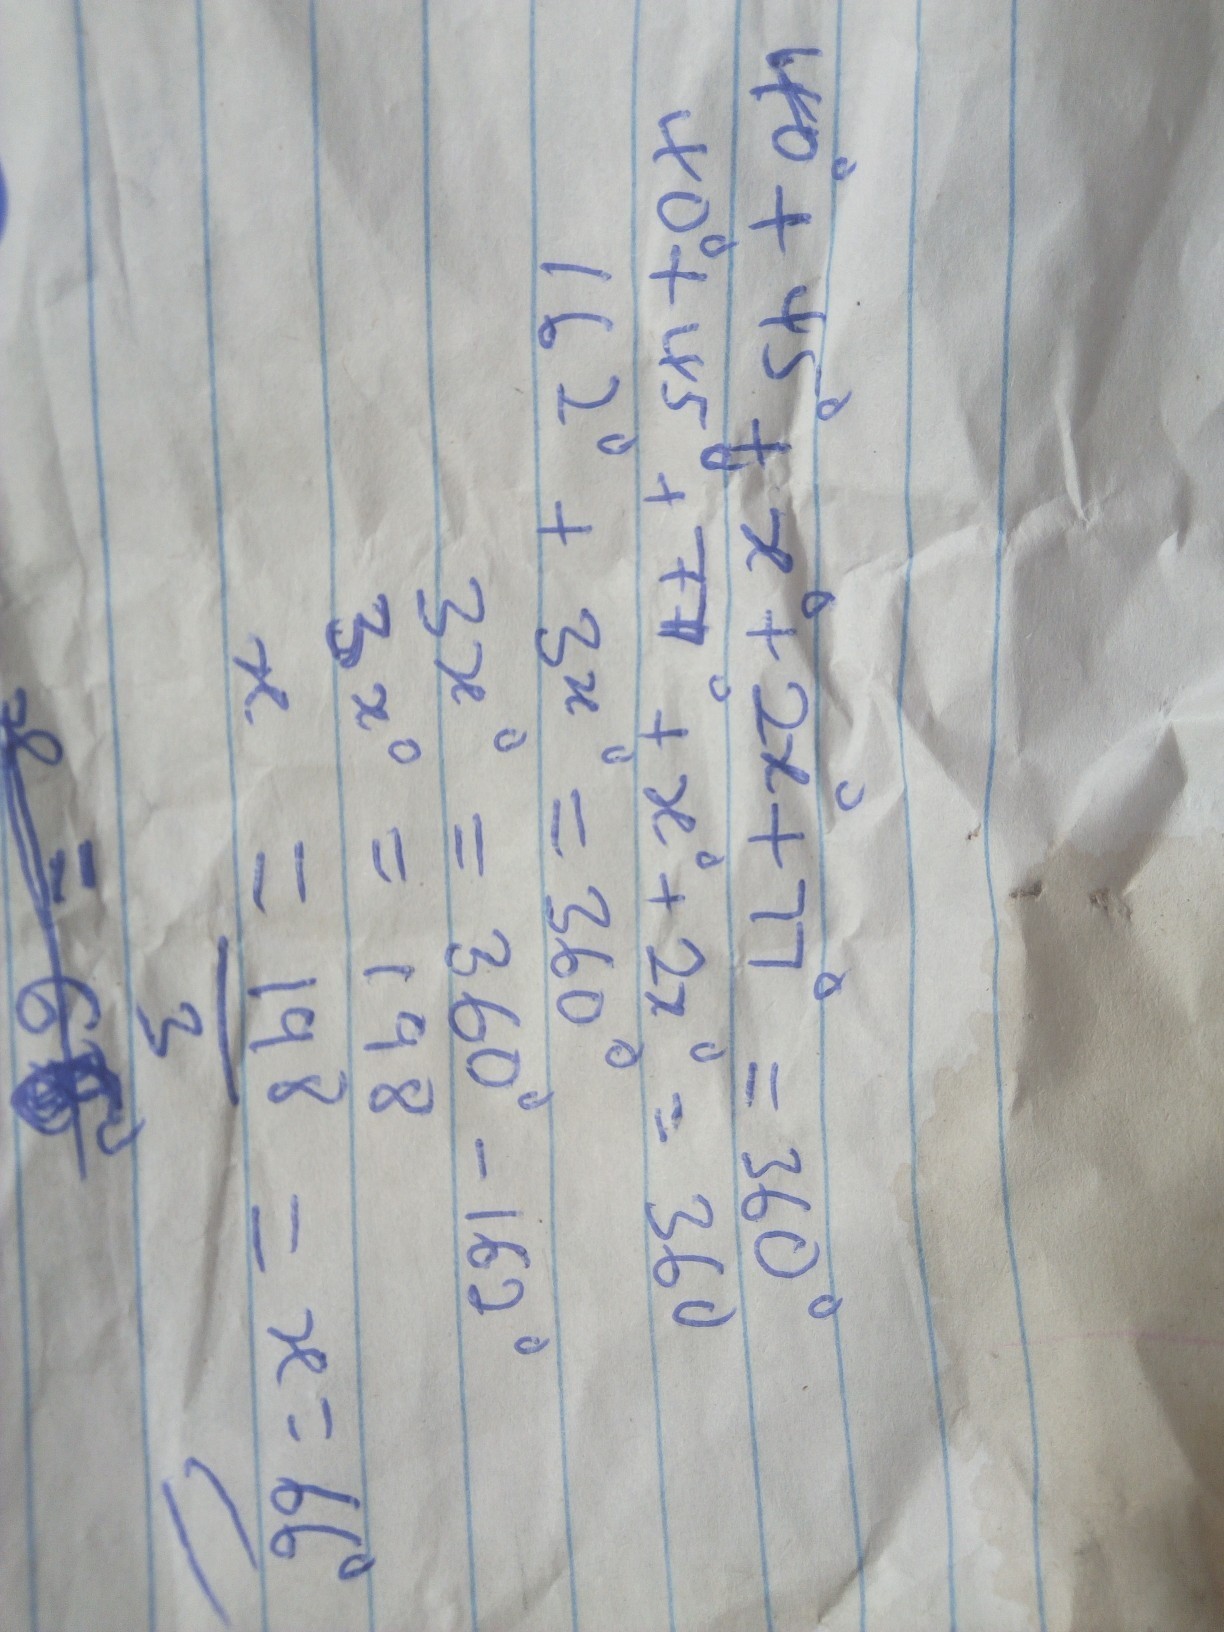 40° + 45° + x° + 2x° + 77° = 360°
40° + 45° + 77° + x° + 2x° = 360
162° + 3x° = 360°
3x° = 360° - 162°
3x° = 198
x = 198 = x = 66°
3